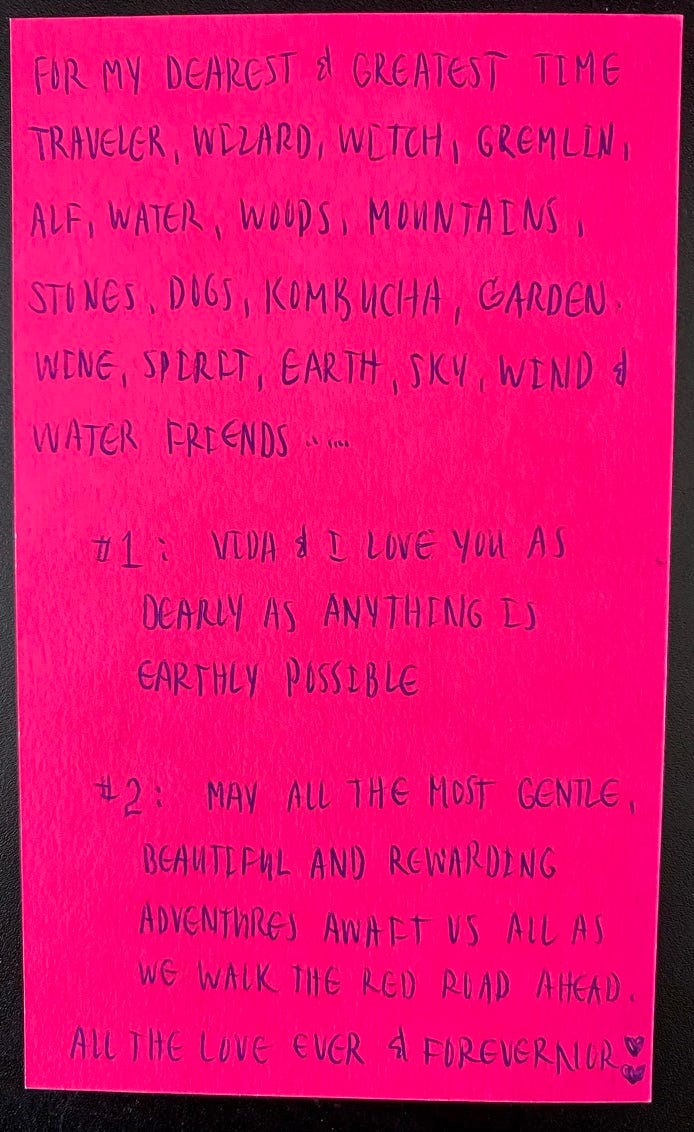 FOR MY DEAREST & GREATEST TIME
TRAVELER, WIZARD, WITCH, GREMLIN,
ALF, WATER, WOODS, MOUNTAINS,
STONES, DOGS, KOMBUCHA, GARDEN.
WINE, SPIRIT, EARTH, SKY, WIND &
WATER FRIENDS ......
#1: VIDA & I LOVE YOU AS
DEARLY AS ANYTHING IS
EARTHLY POSSIBLE
#2: MAY ALL THE MOST GENTLE,
BEAUTIFUL AND REWARDING
ADVENTURES AWAIT US ALL AS
WE WALK THE RED ROAD AHEAD.
ALL THE LOVE EVER & FOREVERMOR